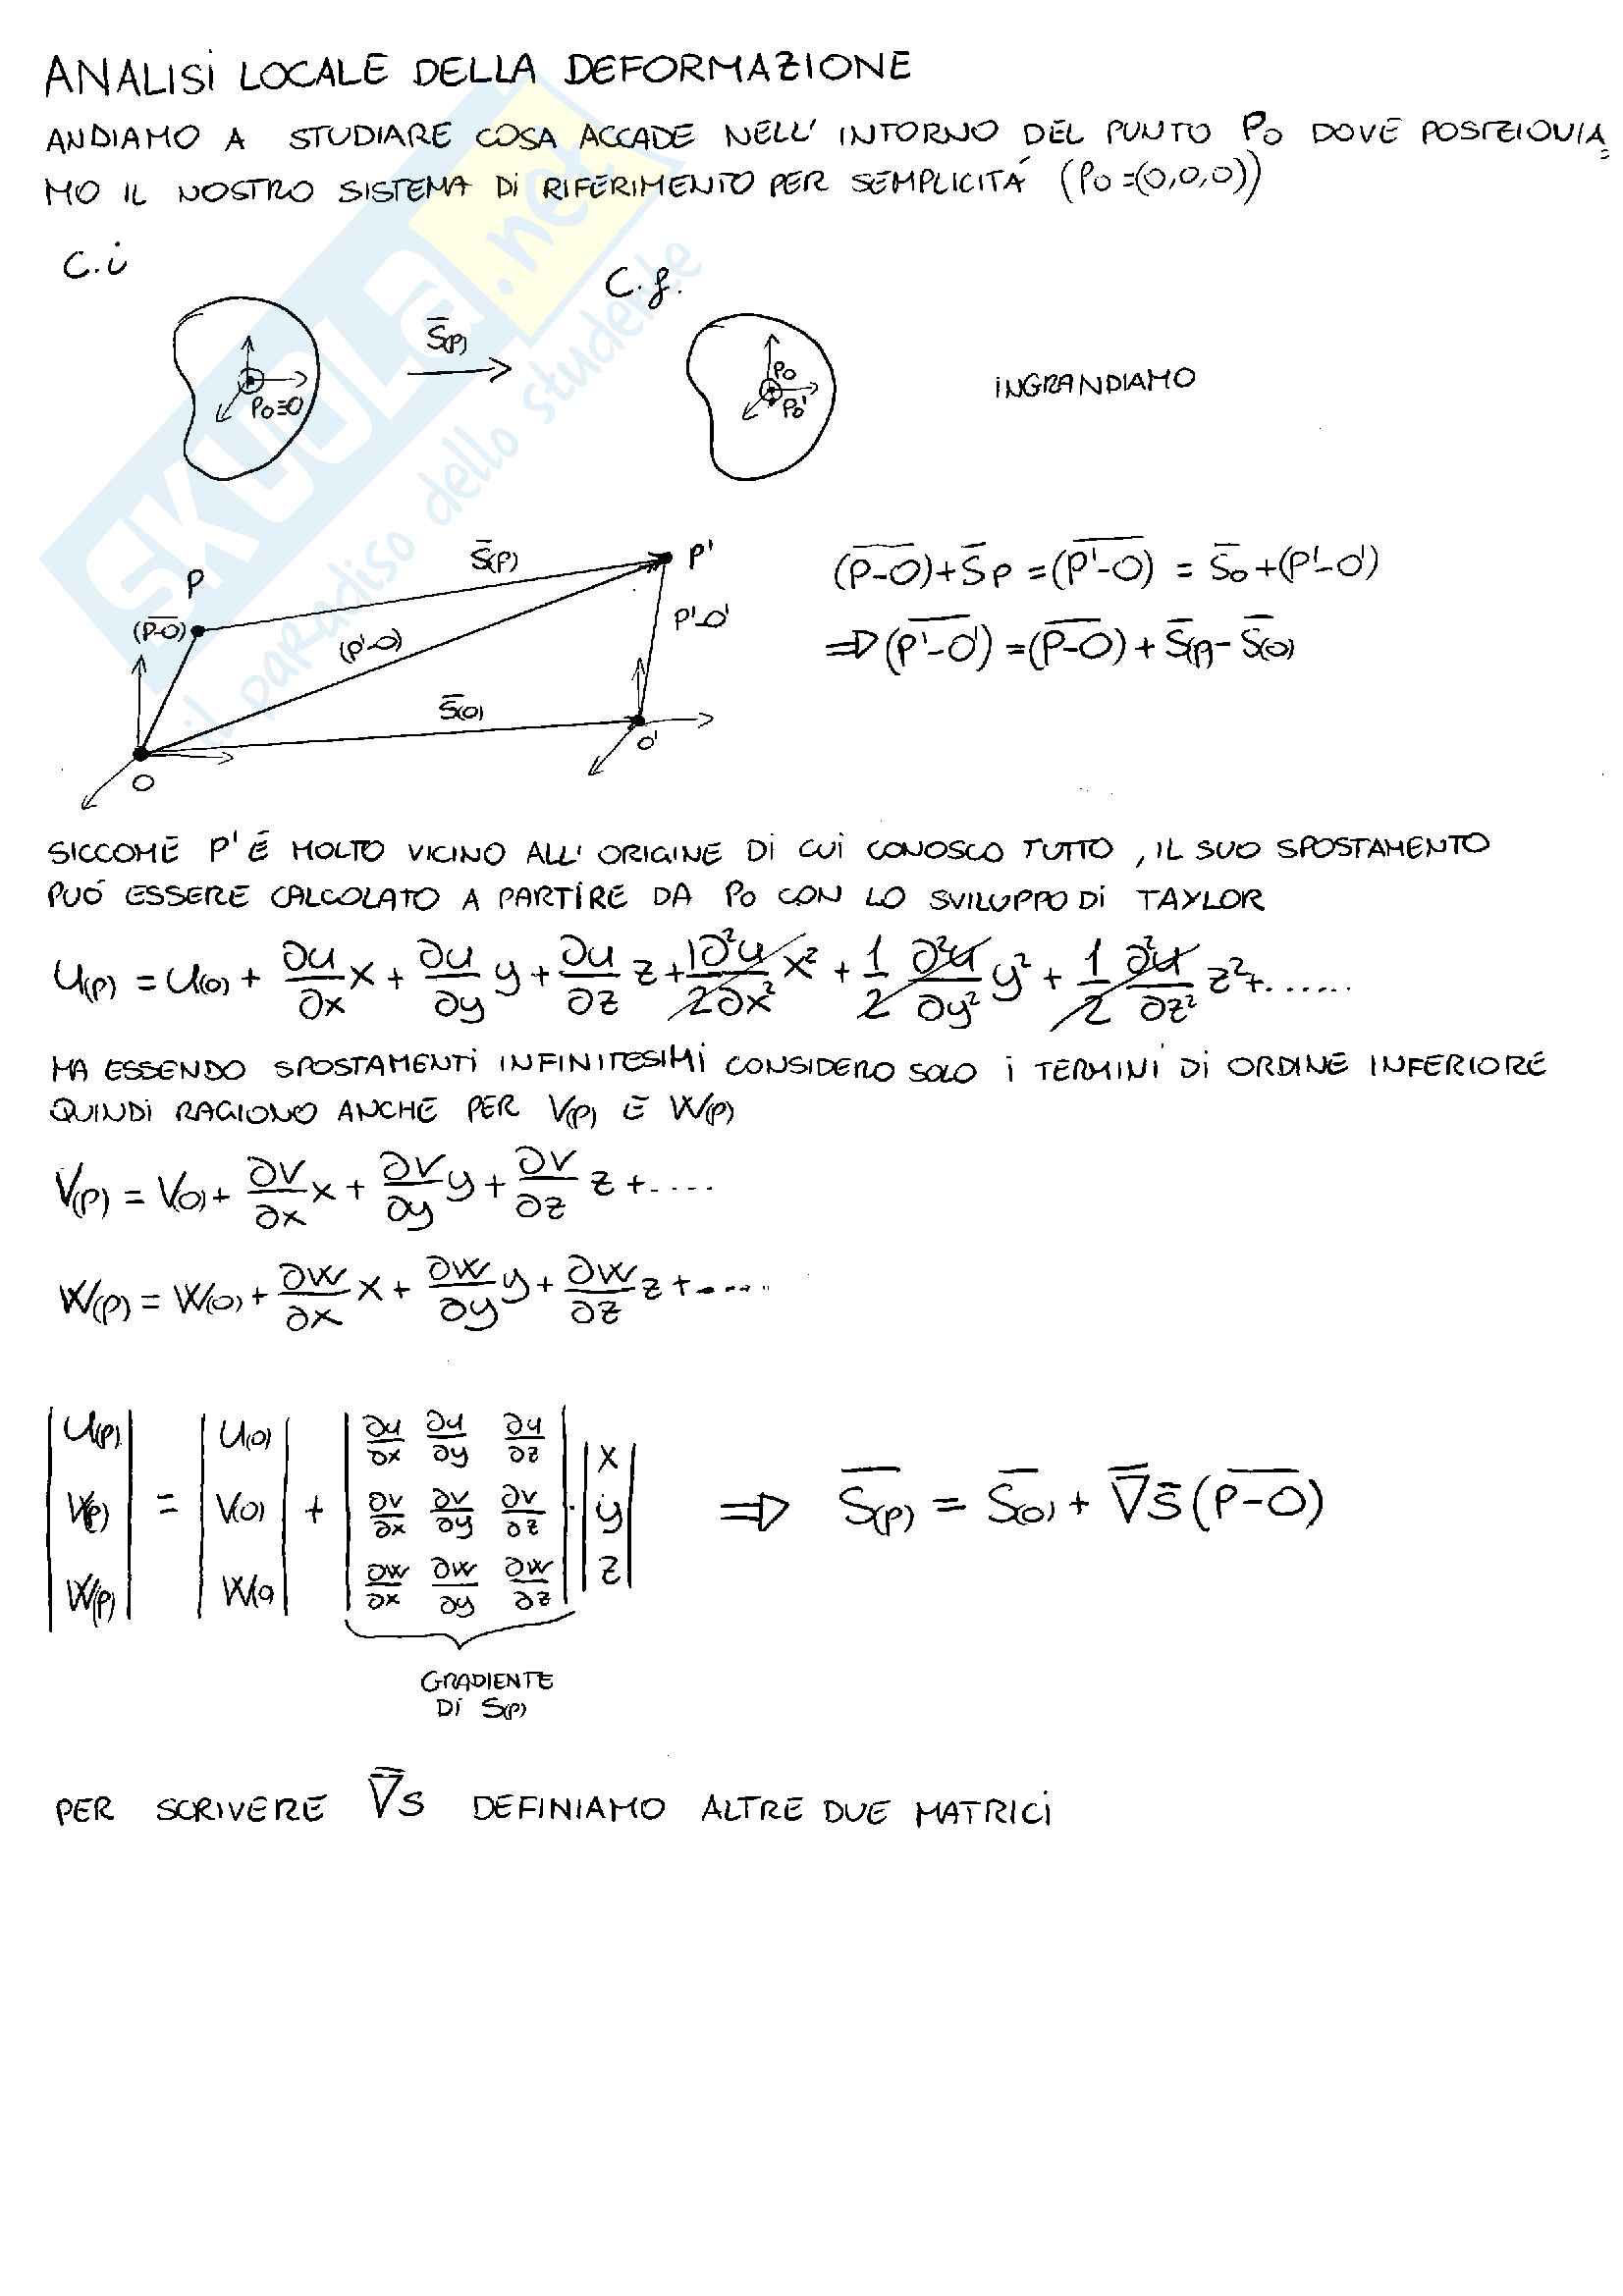 ANALISI LOCALE DELLA DEFORMAZIONE
ANDIAMO A STUDIARE COSA ACCADE NELL' INTORNO DEL PUNTO Po DOVE POSIZIONIA=
MO IL NOSTRO SISTEMA DI RIFERIMENTO PER SEMPLICITÁ (Po=(0,0,0))
C.i
C.f.
S̄(P)
Po≡O
Po
Po'
INGRANDIAMO
S̄(P)
P'
P
(P-O)
(P'-O)
P'-O'
S̄(O)
O
O'
(P-O)+S̄P=(P'-O) = S̄o+(P'-O')
⇒(P'-O')=(P-O)+S̄(P)-S̄(O)
SICCOME P' É MOLTO VICINO ALL' ORIGINE DI CUI CONOSCO TUTTO, IL SUO SPOSTAMENTO
PUÓ ESSERE CALCOLATO A PARTIRE DA Po CON LO SVILUPPO DI TAYLOR
U(P) = U(O) + ∂u/∂x x + ∂u/∂y y + ∂u/∂z z + 1/2 ∂²u/∂x² x² + 1/2 ∂²u/∂y² y² + 1/2 ∂²u/∂z² z² +......
MA ESSENDO SPOSTAMENTI INFINITESIMI CONSIDERO SOLO I TERMINI DI ORDINE INFERIORE
QUINDI RAGIONO ANCHE PER V(P) E W(P)
V(P) = V(O) + ∂v/∂x x + ∂v/∂y y + ∂v/∂z z +.....
W(P) = W(O) + ∂w/∂x x + ∂w/∂y y + ∂w/∂z z +.....
|U(P)| = |U(O)| + |∂u/∂x ∂u/∂y ∂u/∂z| · |x|
|V(P)| |V(O)| |∂v/∂x ∂v/∂y ∂v/∂z| |y| ⇒ S̄(P) = S̄(O) + ∇̄S̄(P-O)
|W(P)| |W(O| |∂w/∂x ∂w/∂y ∂w/∂z| |z|
GRADIENTE
DI S(P)
PER SCRIVERE ∇̄S DEFINIAMO ALTRE DUE MATRICI
SKUOLA.net
il paradiso dello studente